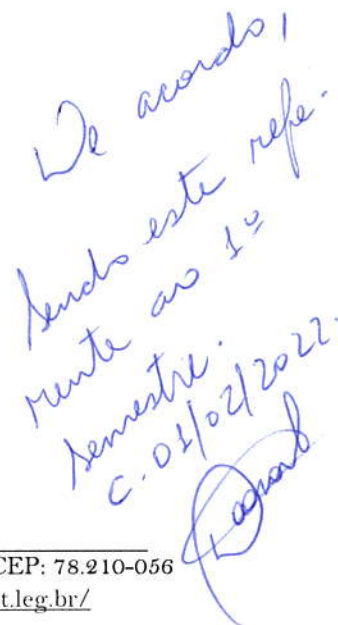 De acordo,
sendo este refe-
rente ao 1º
semestre.
C. 01/02/2022.
CEP: 78.210-056
t.leg.br/